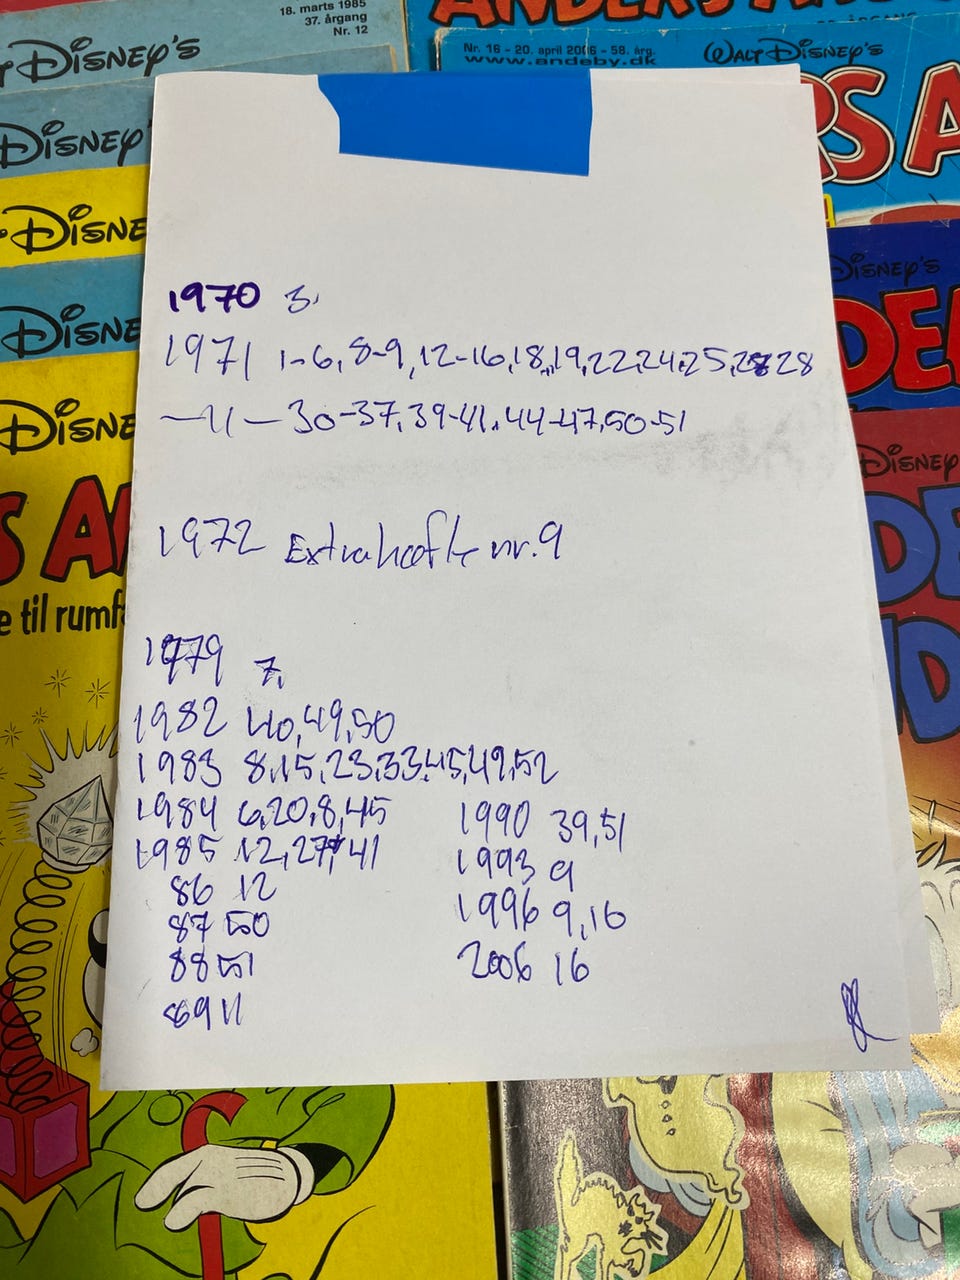 18. marts 1985
37. årgang
Nr. 12
DISNEY'S
DISNEY'
DISNE
DISNE
DISNE
S AN
e til rumf
ANDERS A
ÅRGANG
Nr. 16 - 20. april 2006 - 58. årg.
www.andeby.dk
WALT DISNEY'S
RS A
DISNEY'S
DE
DISNEY
DE
ND
1970 3,
1971 1-6,8-9,12-16,18,19,22,24,25,28 28
—11— 30-37,39-41,44-47,50-51
1972 Extrahæfte nr.9
1979 7,
1982 40,49,50
1983 8,15,23,33,45,49,52
1984 6,20,8,45
1985 12,27,41
86 12
87 50
88 51
89 11
1990 39,51
1993 9
1996 9,16
2006 16